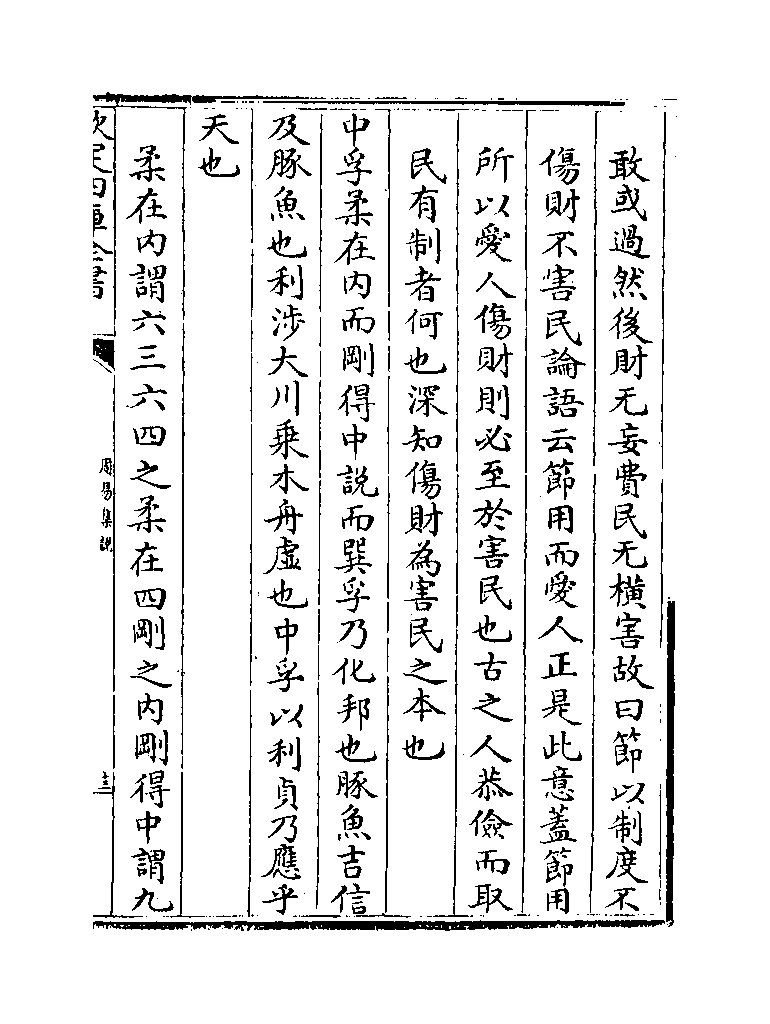 敢或過然後財无妄費民无橫害故曰節以制度不
傷財不害民論語云節用而愛人正是此意蓋節用
所以愛人傷財則必至於害民也古之人恭儉而取
民有制者何也深知傷財為害民之本也
中孚柔在内而剛得中說而巽孚乃化邦也豚魚吉信
及豚魚也利涉大川乗木舟虛也中孚以利貞乃應乎
天也
柔在内謂六三六四之柔在四剛之内剛得中謂九
欽定四庫全書
周易集說